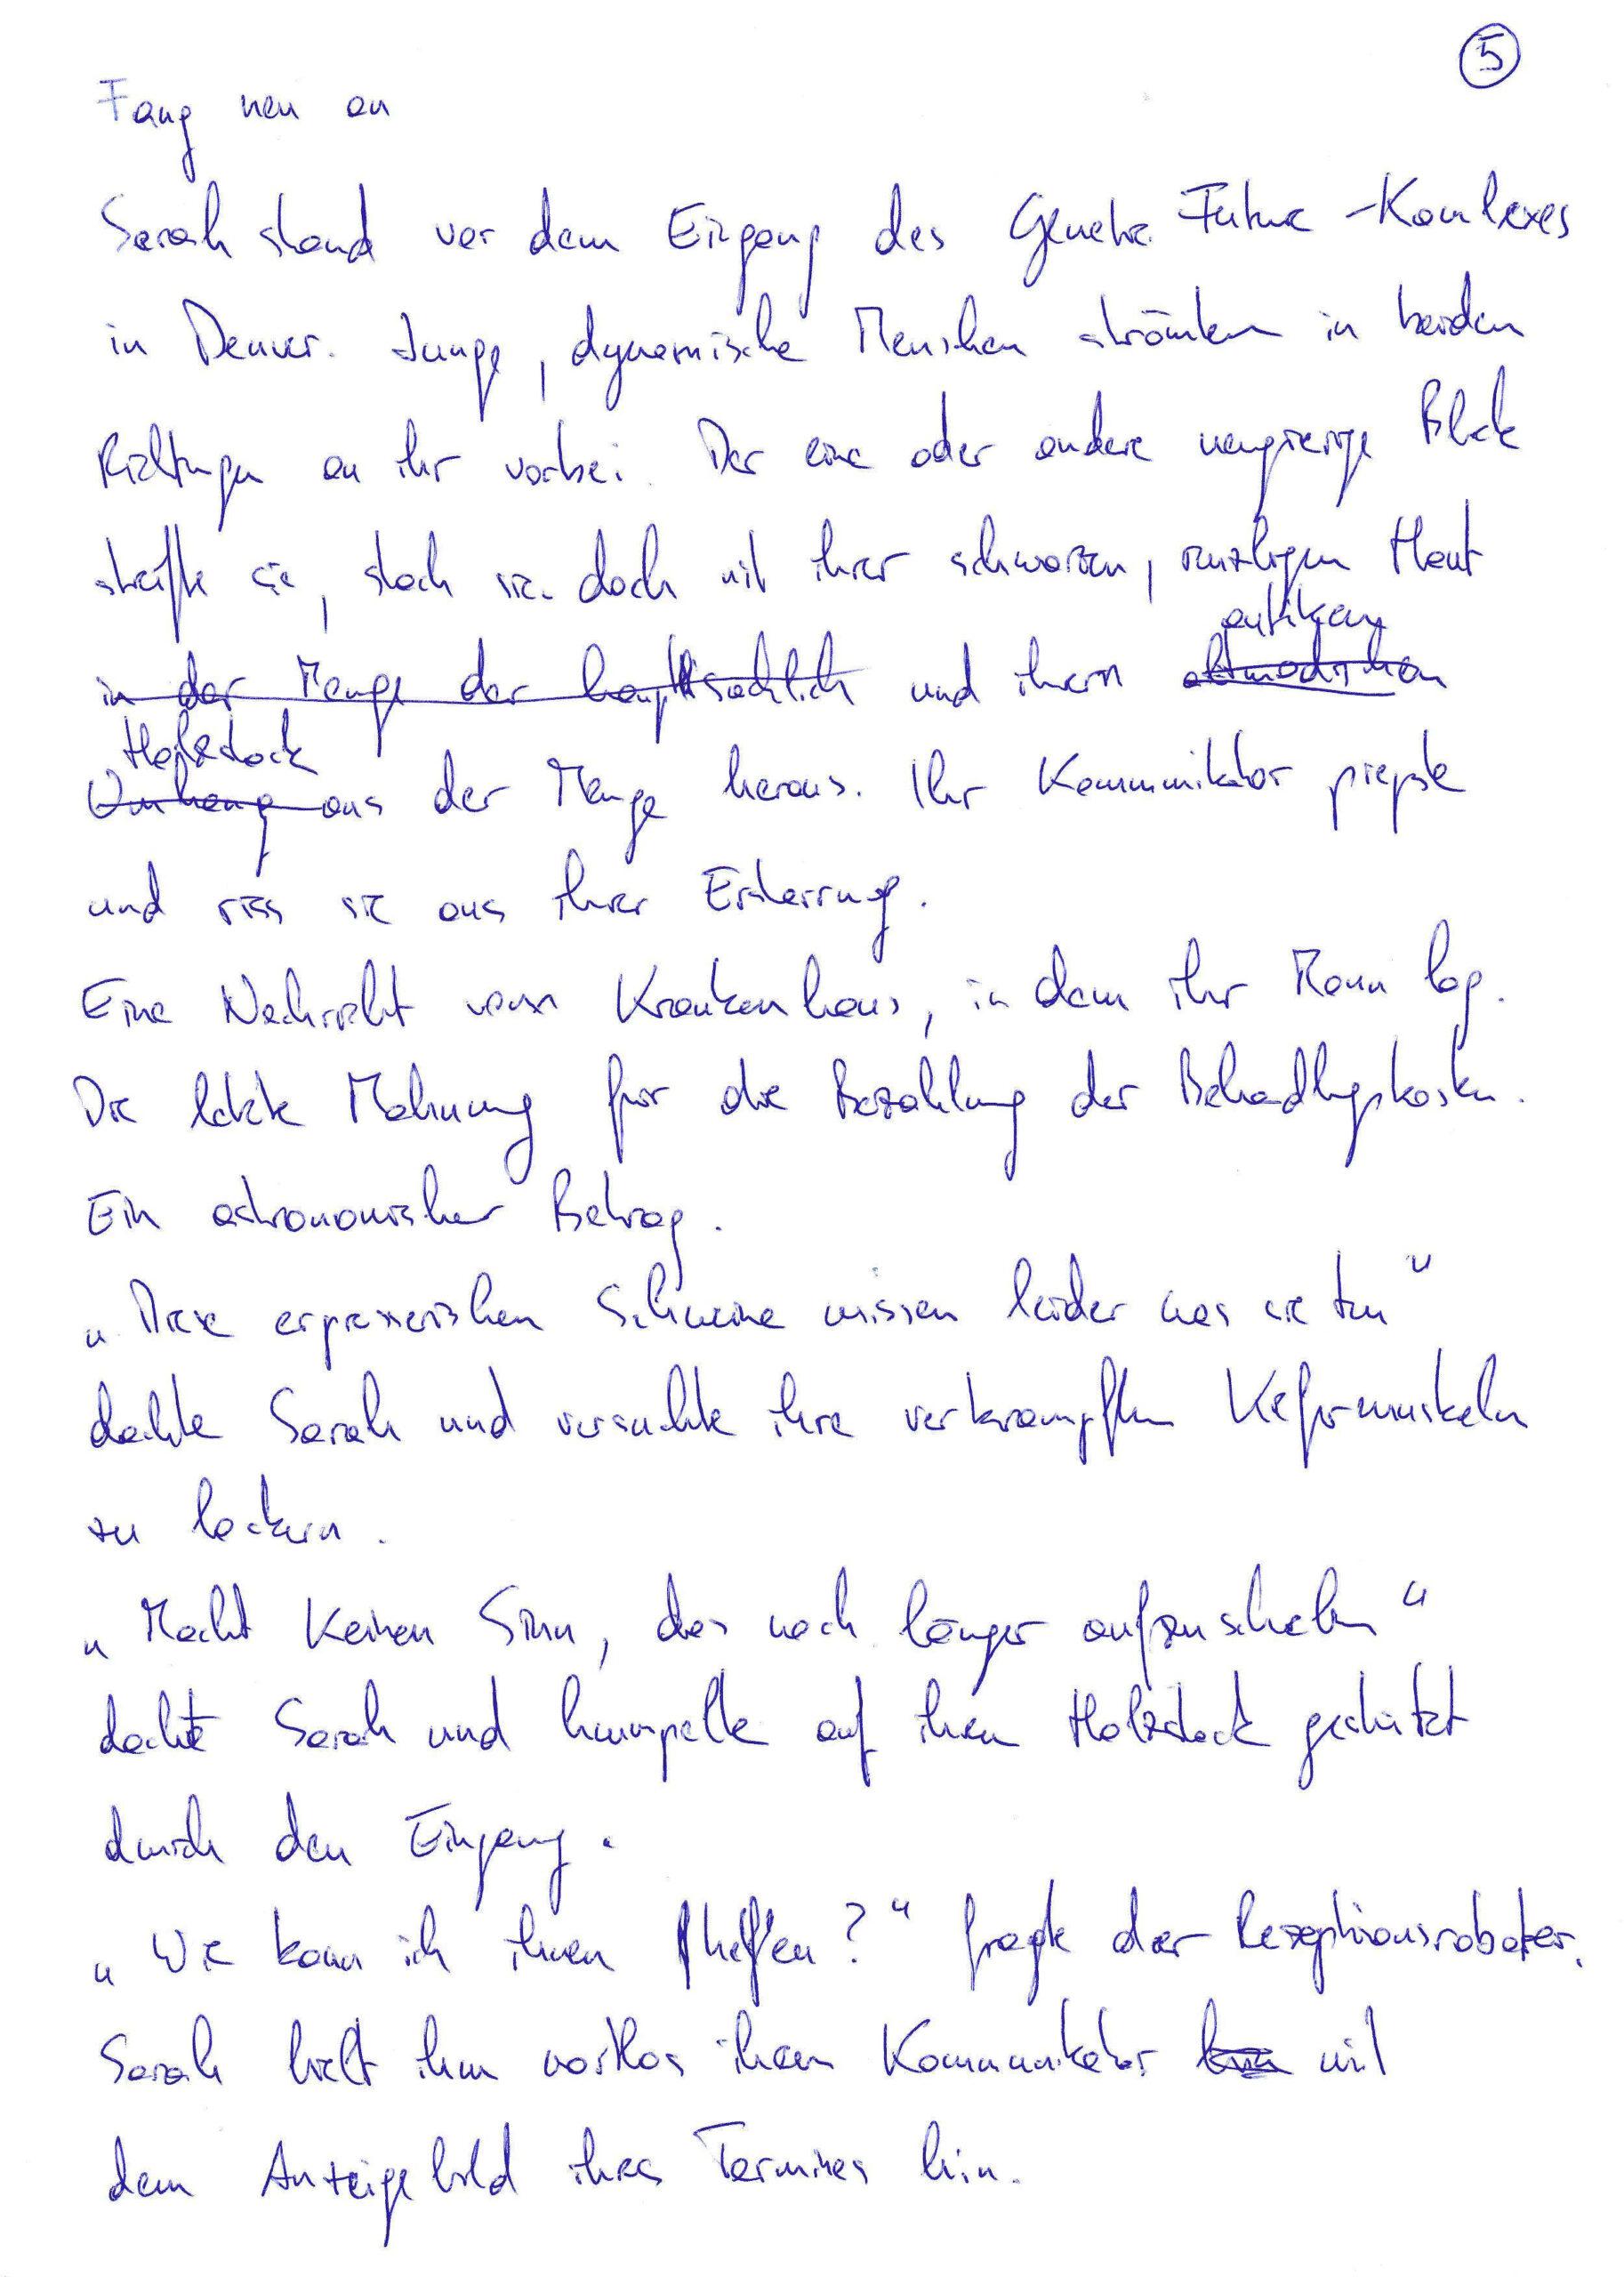 5
Fang neu an
Sarah stand vor dem Eingang des Future-Komlexes
in Denver. Junge, dynamische Menschen strömten in beiden
Richtungen an ihr vorbei. Der eine oder andere neugierige Blick
streifte sie, stach sie doch mit ihrer schwarzen, runzligen Haut
antiken
in der Menge der hauptsächlich und ihrem altmodischen
Holzstock
Umhang aus der Menge heraus. Ihr Kommunikator piepste
und riss sie aus ihrer Erstarrung.
Eine Nachricht vom Krankenhaus, in dem ihr Mann lag.
Die letzte Mahnung für die Bezahlung der Behandlungskosten.
Ein astronomischer Betrag.
„Diese erpresserischen Schweine wissen leider was sie tun“
dachte Sarah und versuchte ihre verkrampften Kiefermuskeln
zu lockern.
„Macht keinen Sinn, das noch länger aufzuschieben“
dachte Sarah und humpelte auf ihren Holzstock gestützt
durch den Eingang.
„Wie kann ich ihnen helfen?“ fragte der Rezeptionsroboter.
Sarah hielt ihm wortlos ihren Kommunikator mit
dem Anzeigebild ihres Termines hin.